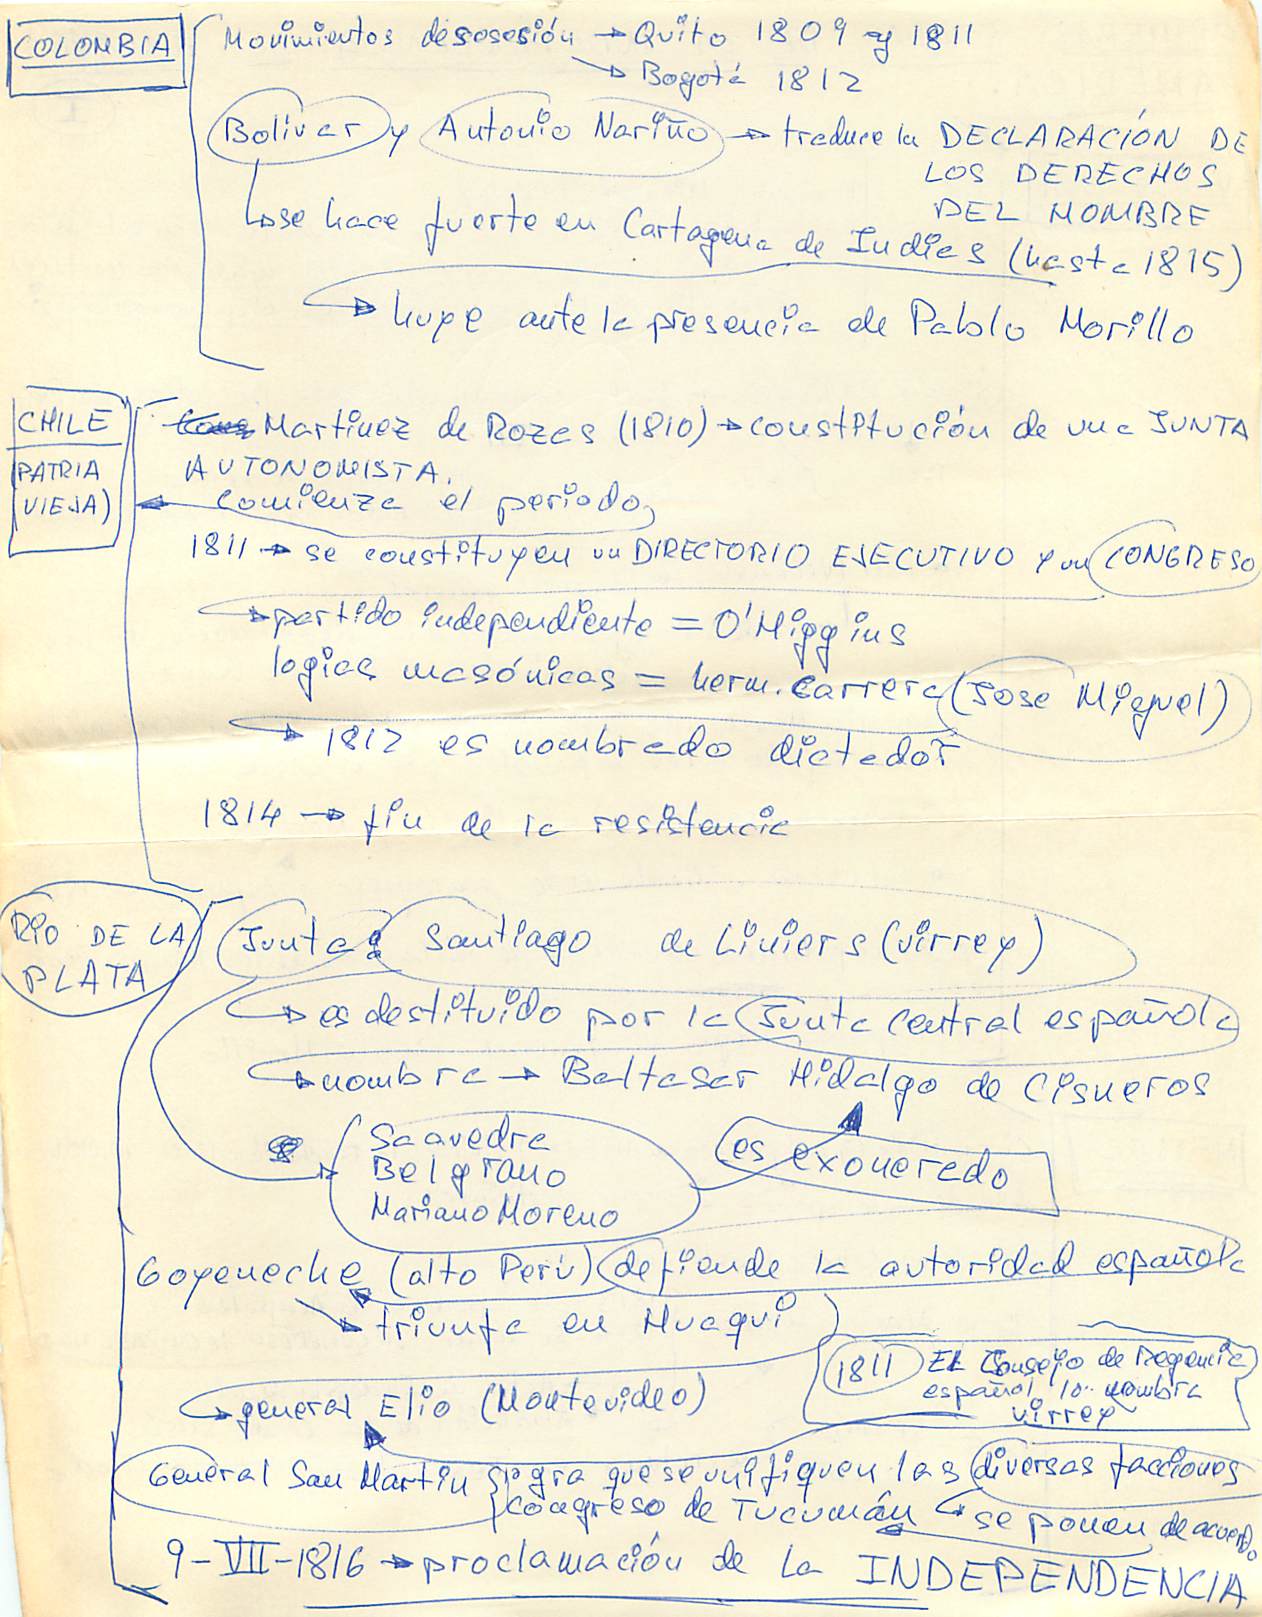 COLOMBIA
Movimientos de sosesión → Quito 1809 y 1811
→ Bogotá 1812
Bolívar y Antonio Nariño → traduce la DECLARACIÓN DE
LOS DERECHOS
DEL HOMBRE
se hace fuerte en Cartagena de Indias (hasta 1815)
huye ante la presencia de Pablo Morillo
CHILE
(PATRIA
VIEJA)
Martínez de Rozas (1810) → constitución de una JUNTA
AUTONOMISTA.
comienza el período
1811 → se constituyen un DIRECTORIO EJECUTIVO y un CONGRESO
partido independiente = O'Higgins
logias masónicas = herm. Carrera (Jose Miguel)
1812 es nombrado dictador
1814 → fin de la resistencia
RIO DE LA
PLATA
Junta: Santiago de Liniers (virrey)
es destituido por la Junta central española
nombra → Baltasar Hidalgo de Cisneros
Saavedra
Belgrano
Mariano Moreno
es exonerado
Goyeneche (alto Perú) defiende la autoridad española
triunfa en Huaqui
1811 El Consejo de Regencia
español lo nombra
virrey
general Elio (Montevideo)
General San Martín logra que se unifiquen las diversas facciones
Congreso de Tucumán se ponen de acuerdo
9-VII-1816 → proclamación de la INDEPENDENCIA